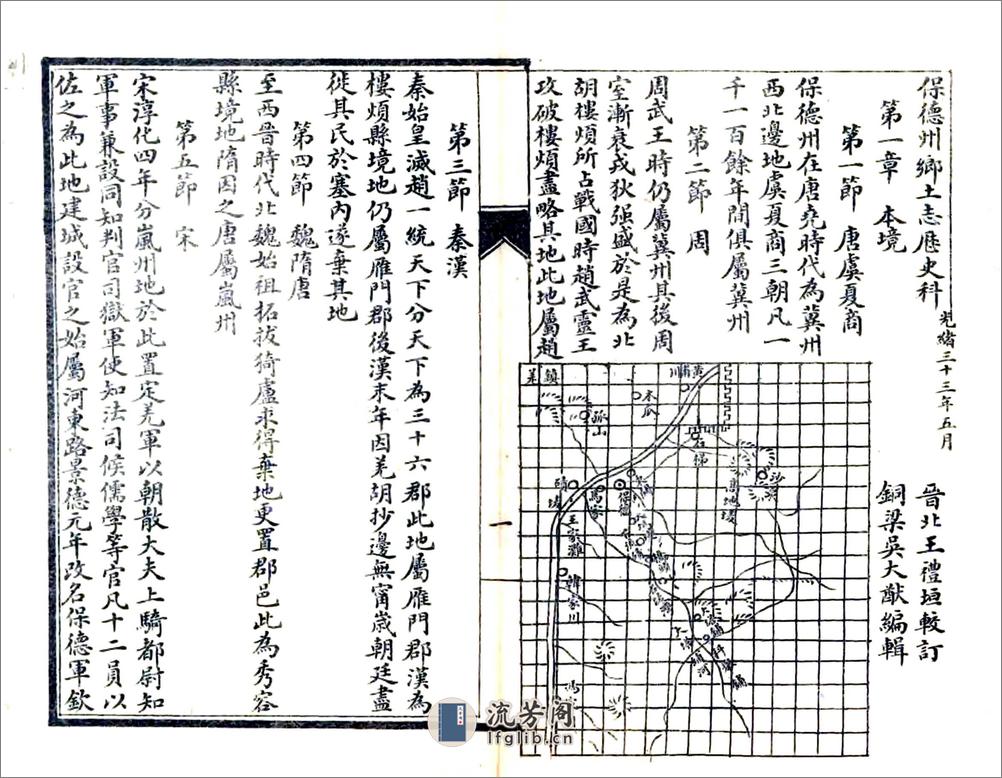 保德州鄉土志歷史科
光緒三十三年五月
晉北王禮垣較訂
銅梁吳大猷編輯
第一章　本境
第一節　唐虞夏商
保德州在唐堯時代為冀州
西北邊地虞夏商三朝凡一
千一百餘年間俱屬冀州
第二節　周
周武王時仍屬冀州其後周
室漸衰戎狄强盛於是為北
胡樓煩所占戰國時趙武靈王
攻破樓煩盡略其地此地屬趙
黃甫川
鎮羌
木瓜
孤山
石梯
沙泉
馬家
保德
王家灘
韓家川
一
第三節　秦漢
秦始皇滅趙一統天下分天下為三十六郡此地屬雁門郡漢為
樓煩縣境地仍屬雁門郡後漢末年因羌胡抄邊無甯歲朝廷盡
徙其民於塞內遂棄其地
第四節　魏隋唐
至西晉時代北魏始祖拓拔猗盧求得棄地更置郡邑此為秀容
縣境地隋因之唐屬嵐州
第五節　宋
宋淳化四年分嵐州地於此置定羌軍以朝散大夫上騎都尉知
軍事兼設同知判官司獄軍使知法司候儒學等官凡十二員以
佐之為此地建城設官之始屬河東路景德元年改名保德軍欽
流芳阁
lfglib.cn